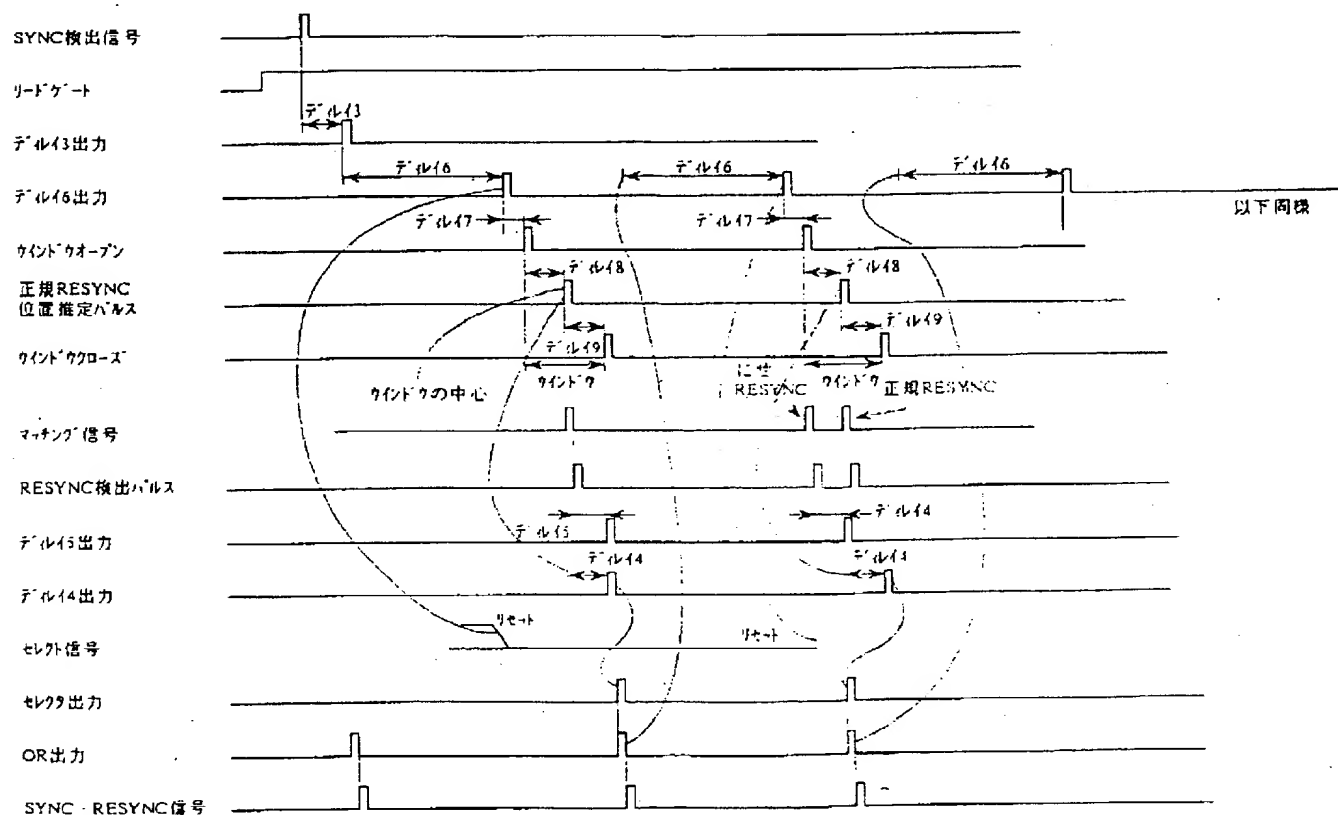 SYNC検出信号
リードゲート
ディレイ3
ディレイ3出力
ディレイ6
ディレイ6
ディレイ6
ディレイ6出力
以下同様
ディレイ7
ディレイ7
ウインドウオープン
ディレイ8
ディレイ8
正規RESYNC
位置推定パルス
ディレイ9
ディレイ9
ウインドウクローズ
ウインドウ
にせ
RESYNC
ウインドウ
正規RESYNC
ウインドウの中心
マッチング信号
RESYNC検出パルス
ディレイ5
ディレイ4
ディレイ5出力
ディレイ4
ディレイ4出力
リセット
リセット
セレクト信号
セレクタ出力
OR出力
SYNC・RESYNC信号